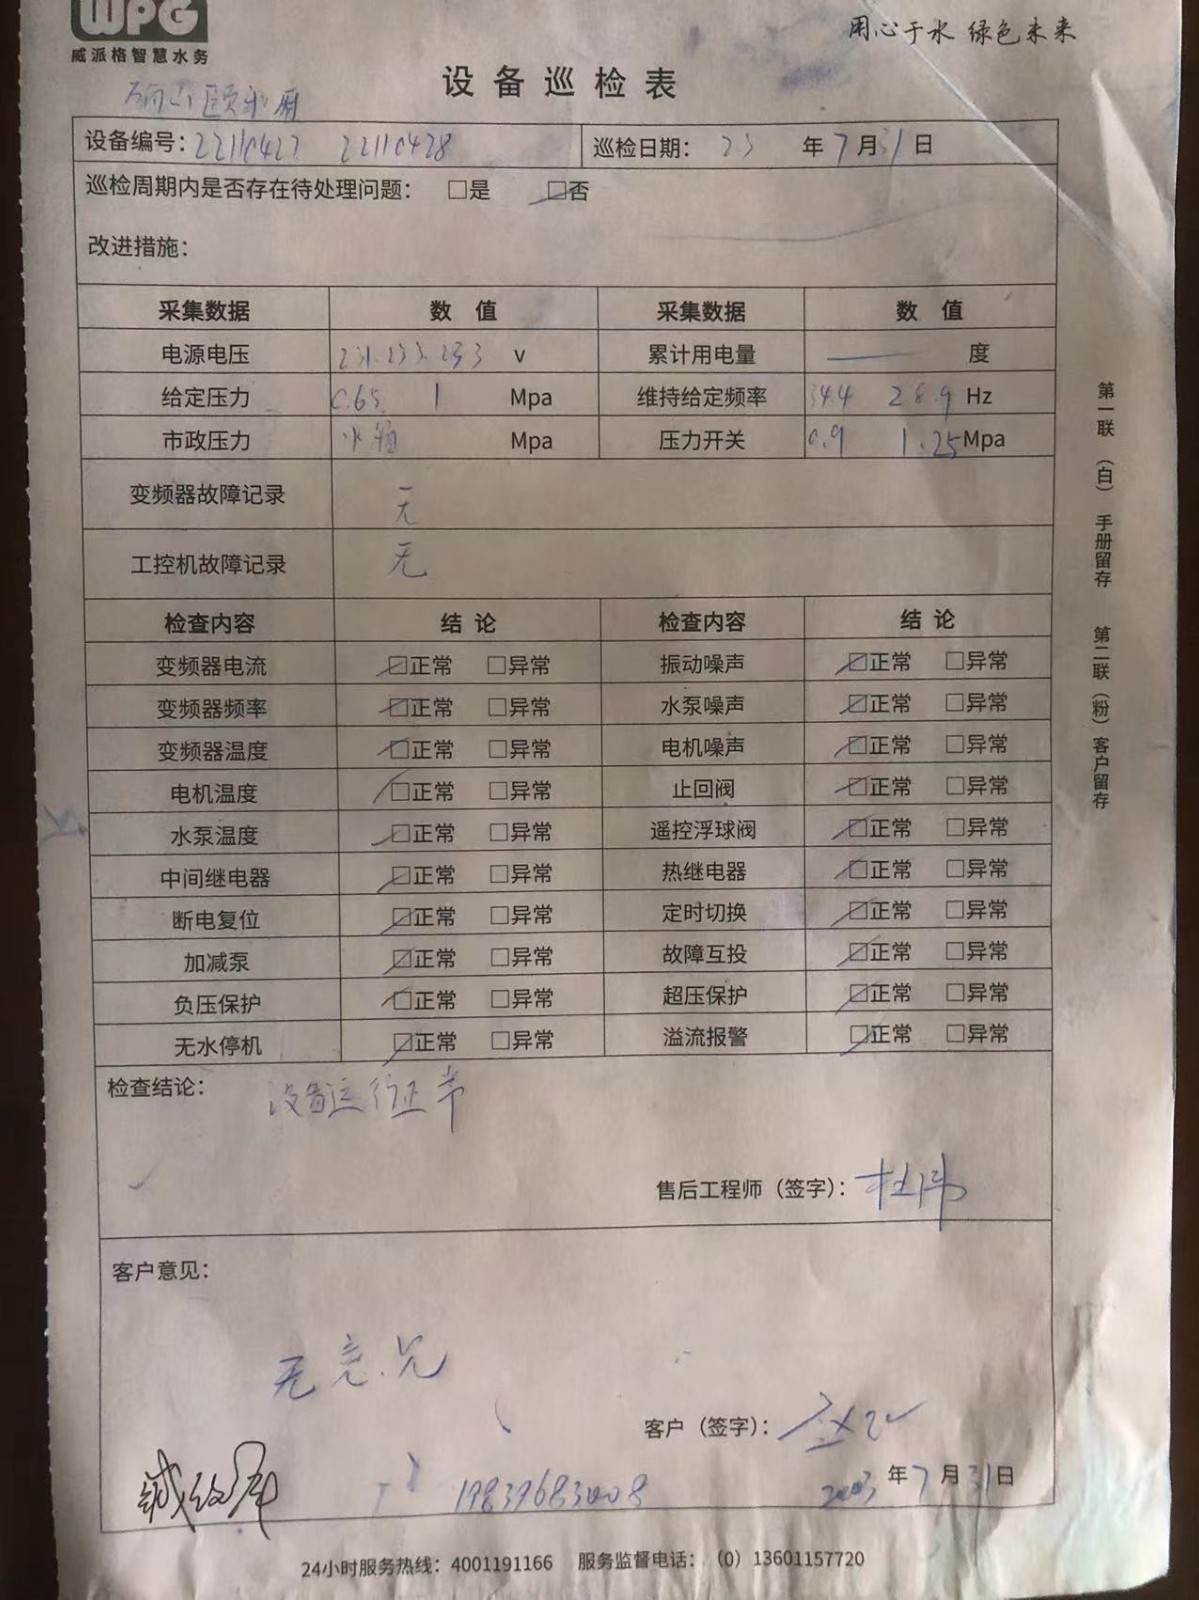 WPG
威派格智慧水务
用心于水 绿色未来
设备巡检表
设备编号: 22110427 22110428 巡检日期: 23 年 7 月 31 日
巡检周期内是否存在待处理问题: □是 □否
改进措施:
采集数据 数 值 采集数据 数 值
电源电压 231.233.233 v 累计用电量 —— 度
给定压力 0.65 1 Mpa 维持给定频率 34.4 28.9 Hz
市政压力 水箱 Mpa 压力开关 0.9 1.25 Mpa
变频器故障记录 无
工控机故障记录 无
检查内容 结 论 检查内容 结 论
变频器电流 □正常 □异常 振动噪声 □正常 □异常
变频器频率 □正常 □异常 水泵噪声 □正常 □异常
变频器温度 □正常 □异常 电机噪声 □正常 □异常
电机温度 □正常 □异常 止回阀 □正常 □异常
水泵温度 □正常 □异常 遥控浮球阀 □正常 □异常
中间继电器 □正常 □异常 热继电器 □正常 □异常
断电复位 □正常 □异常 定时切换 □正常 □异常
加减泵 □正常 □异常 故障互投 □正常 □异常
负压保护 □正常 □异常 超压保护 □正常 □异常
无水停机 □正常 □异常 溢流报警 □正常 □异常
检查结论: 设备运行正常
售后工程师（签字）: 杜伟
客户意见:
无意见
客户（签字）:
2023 年 7 月 31 日
24小时服务热线: 4001191166 服务监督电话:（0）13601157720
第一联（白）手册留存 第二联（粉）客户留存